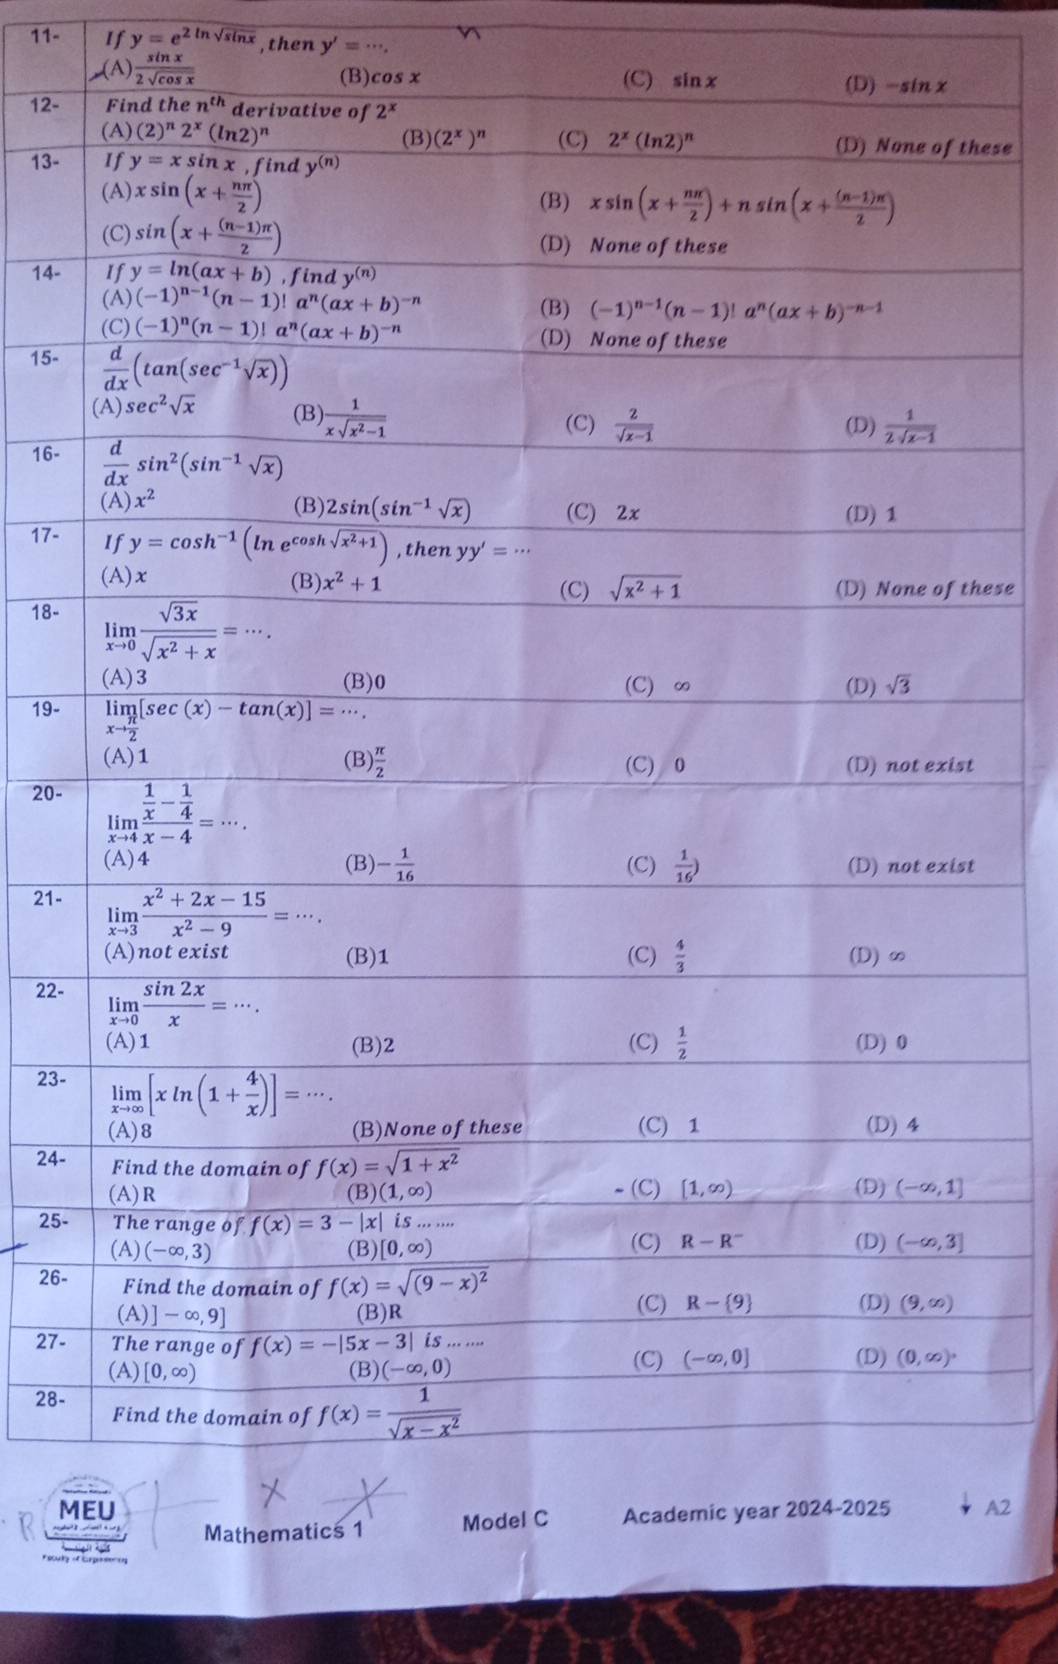 11- If y = e^{2 ln √sinx}, then y′ = ⋯.
(A) sin x / 2√cos x (B) cos x (C) sin x (D) −sin x
12- Find the n^{th} derivative of 2^x
(A) (2)^n 2^x (ln2)^n (B) (2^x)^n (C) 2^x (ln2)^n (D) None of these
13- If y = x sin x , find y^{(n)}
(A) x sin(x + nπ/2) (B) x sin(x + nπ/2) + n sin(x + (n−1)π/2)
(C) sin(x + (n−1)π/2) (D) None of these
14- If y = ln(ax + b) , find y^{(n)}
(A) (−1)^{n−1}(n − 1)! a^n(ax + b)^{−n} (B) (−1)^{n−1}(n − 1)! a^n(ax + b)^{−n−1}
(C) (−1)^n(n − 1)! a^n(ax + b)^{−n} (D) None of these
15- d/dx (tan(sec^{−1}√x))
(A) sec²√x (B) 1/(x√(x²−1)) (C) 2/√(x−1) (D) 1/(2√(x−1))
16- d/dx sin²(sin^{−1} √x)
(A) x² (B) 2sin(sin^{−1} √x) (C) 2x (D) 1
17- If y = cosh^{−1}(ln e^{cosh √(x²+1)}) , then yy′ = ⋯
(A) x (B) x² + 1 (C) √(x² + 1) (D) None of these
18- lim_{x→0} √3x / √(x² + x) = ⋯.
(A) 3 (B) 0 (C) ∞ (D) √3
19- lim_{x→π/2} [sec (x) − tan(x)] = ⋯.
(A) 1 (B) π/2 (C) 0 (D) not exist
20- lim_{x→4} (1/x − 1/4)/(x − 4) = ⋯.
(A) 4 (B) −1/16 (C) 1/16) (D) not exist
21- lim_{x→3} (x² + 2x − 15)/(x² − 9) = ⋯.
(A) not exist (B) 1 (C) 4/3 (D) ∞
22- lim_{x→0} sin 2x / x = ⋯.
(A) 1 (B) 2 (C) 1/2 (D) 0
23- lim_{x→∞} [x ln(1 + 4/x)] = ⋯.
(A) 8 (B) None of these (C) 1 (D) 4
24- Find the domain of f(x) = √(1 + x²)
(A) R (B) (1, ∞) (C) [1, ∞) (D) (−∞, 1]
25- The range of f(x) = 3 − |x| is ... ....
(A) (−∞, 3) (B) [0, ∞) (C) R − R⁻ (D) (−∞, 3]
26- Find the domain of f(x) = √((9 − x)²)
(A) ] − ∞, 9] (B) R (C) R − {9} (D) (9, ∞)
27- The range of f(x) = −|5x − 3| is ... ....
(A) [0, ∞) (B) (−∞, 0) (C) (−∞, 0] (D) (0, ∞)
28- Find the domain of f(x) = 1/√(x − x²)
MEU
Mathematics 1 Model C Academic year 2024-2025 A2